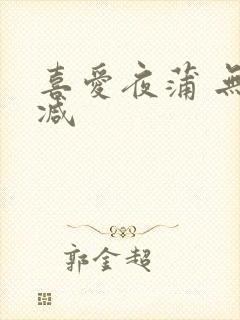 喜愛夜蒲 無
減
郭金超